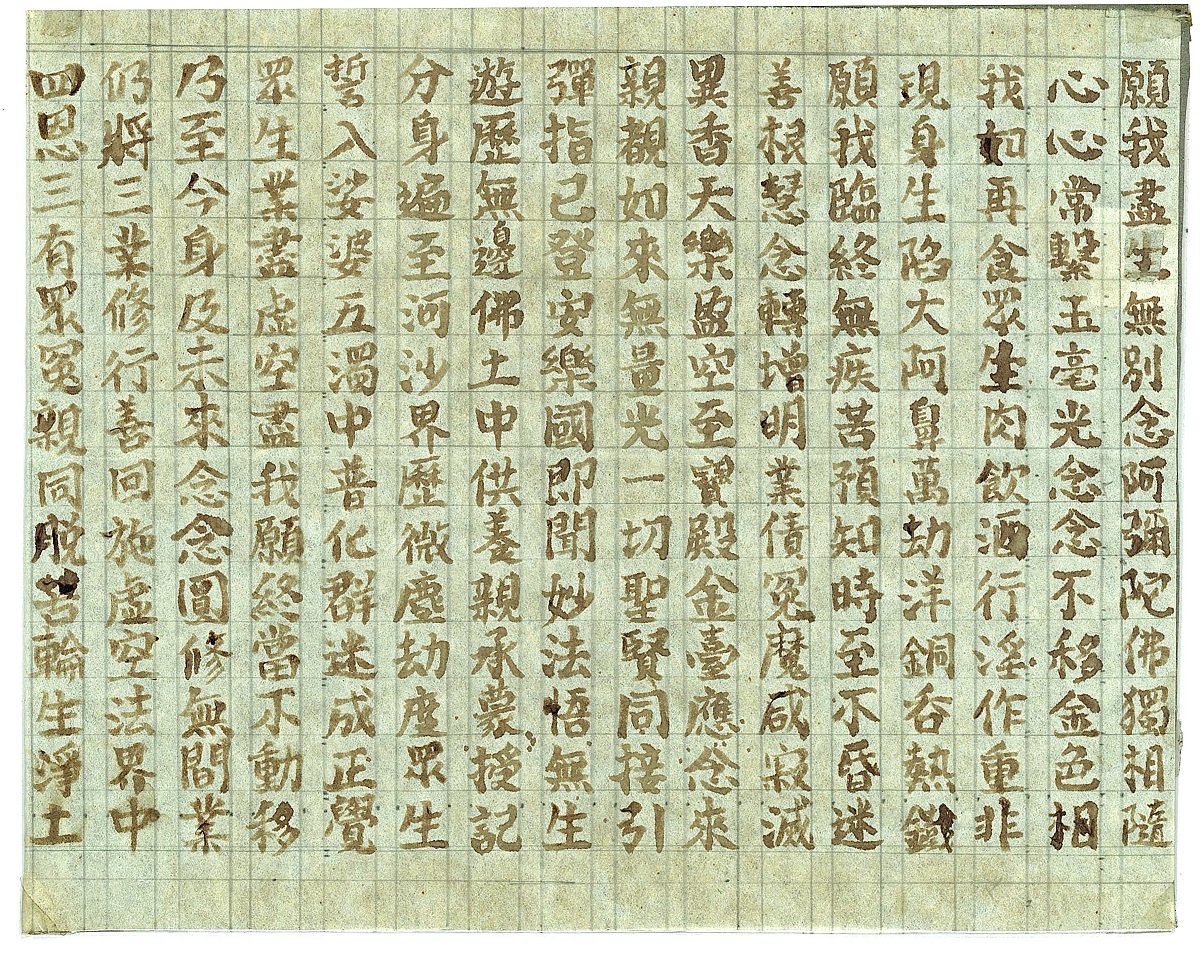 願我盡生無別念阿彌陀佛獨相隨
心心常繫玉毫光念念不移金色相
我如再食眾生肉飲酒行淫作重非
現身生陷大阿鼻萬劫洋銅吞熱鐵
願我臨終無疾苦預知時至不昏迷
善根慧念轉增明業債冤魔咸寂滅
異香天樂盈空至寶殿金臺應念來
親覩如來無量光一切聖賢同接引
彈指已登安樂國即聞妙法悟無生
遊歷無邊佛土中供養親承蒙授記
分身遍至河沙界歷微塵劫度眾生
誓入娑婆五濁中普化群迷成正覺
眾生業盡虛空盡我願終當不動移
乃至今身及未來念念圓修無間業
仍將三業修行善回施虛空法界中
四恩三有眾冤親同脫苦輪生淨土